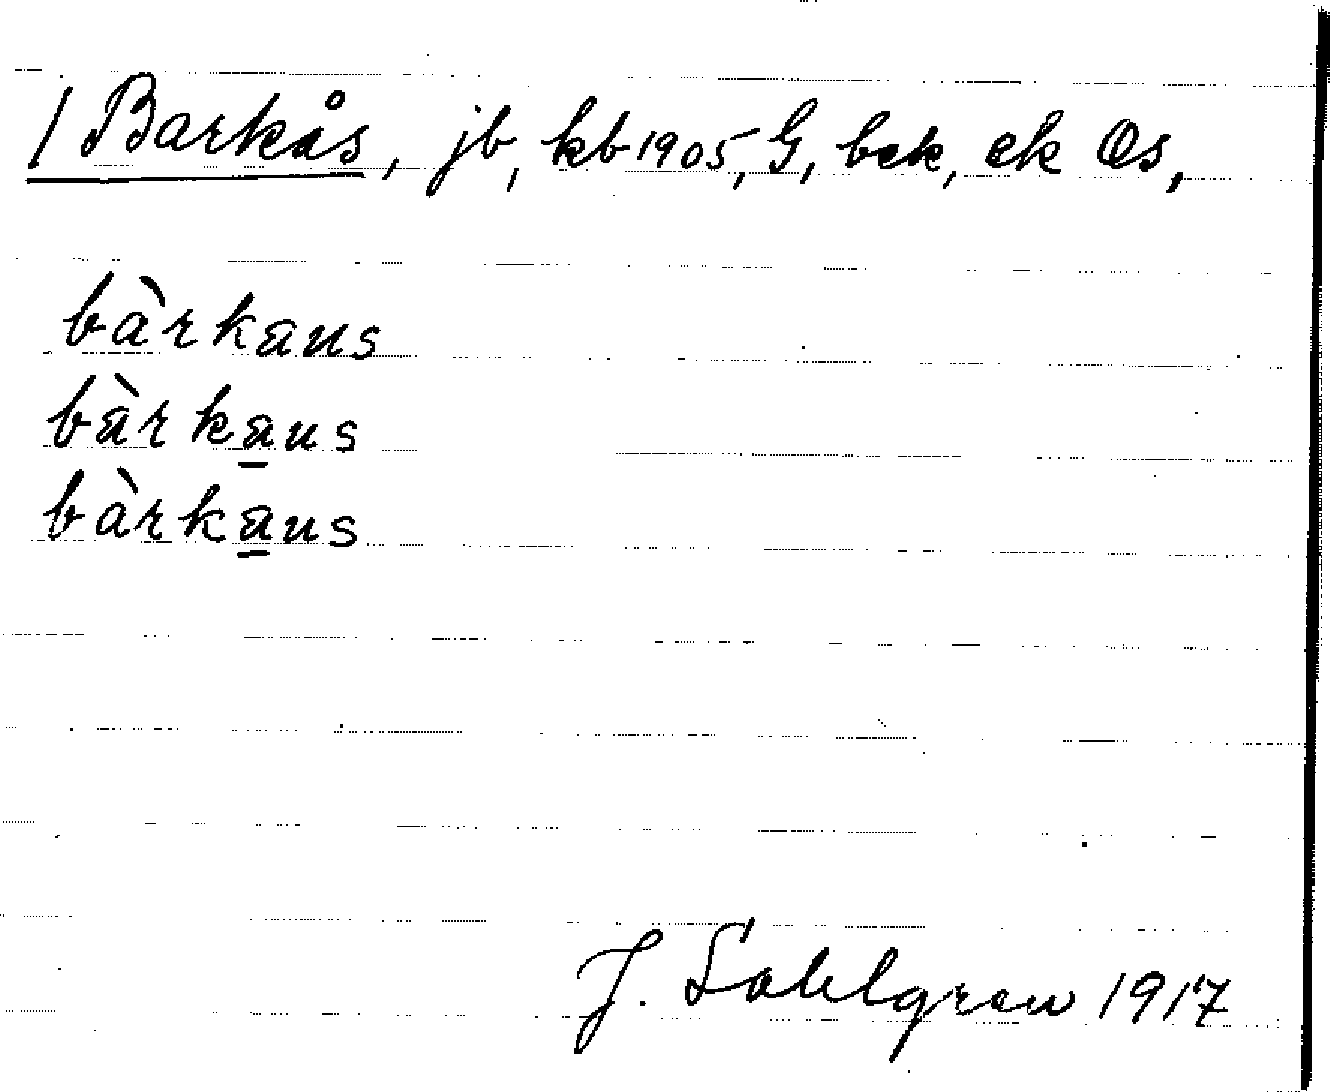 / Barkås, jb, kb 1905, G, bek, ek Os,
bàrkaus
bàrka̲us
bàrka̲us
J. Sahlgren 1917